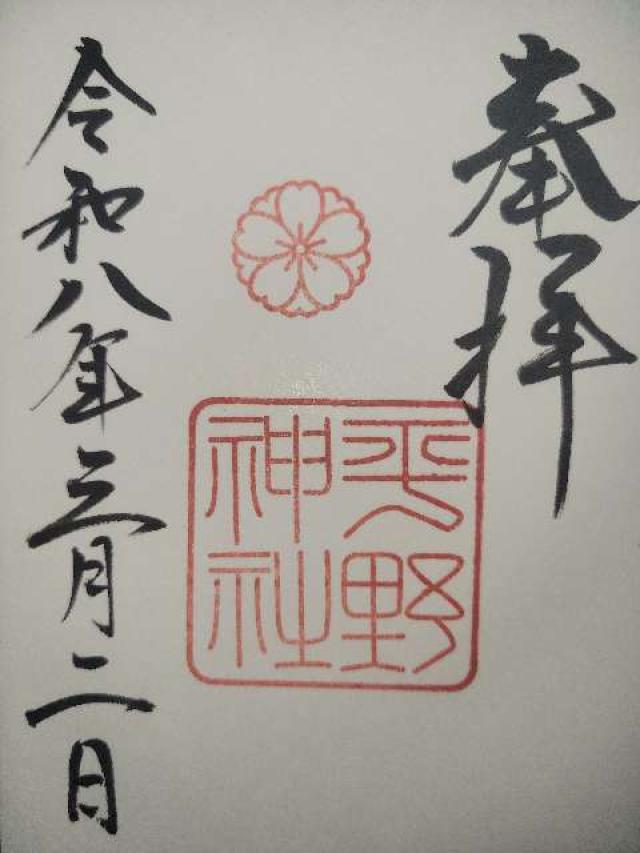 奉拝
平野
神社
令和八年三月二日